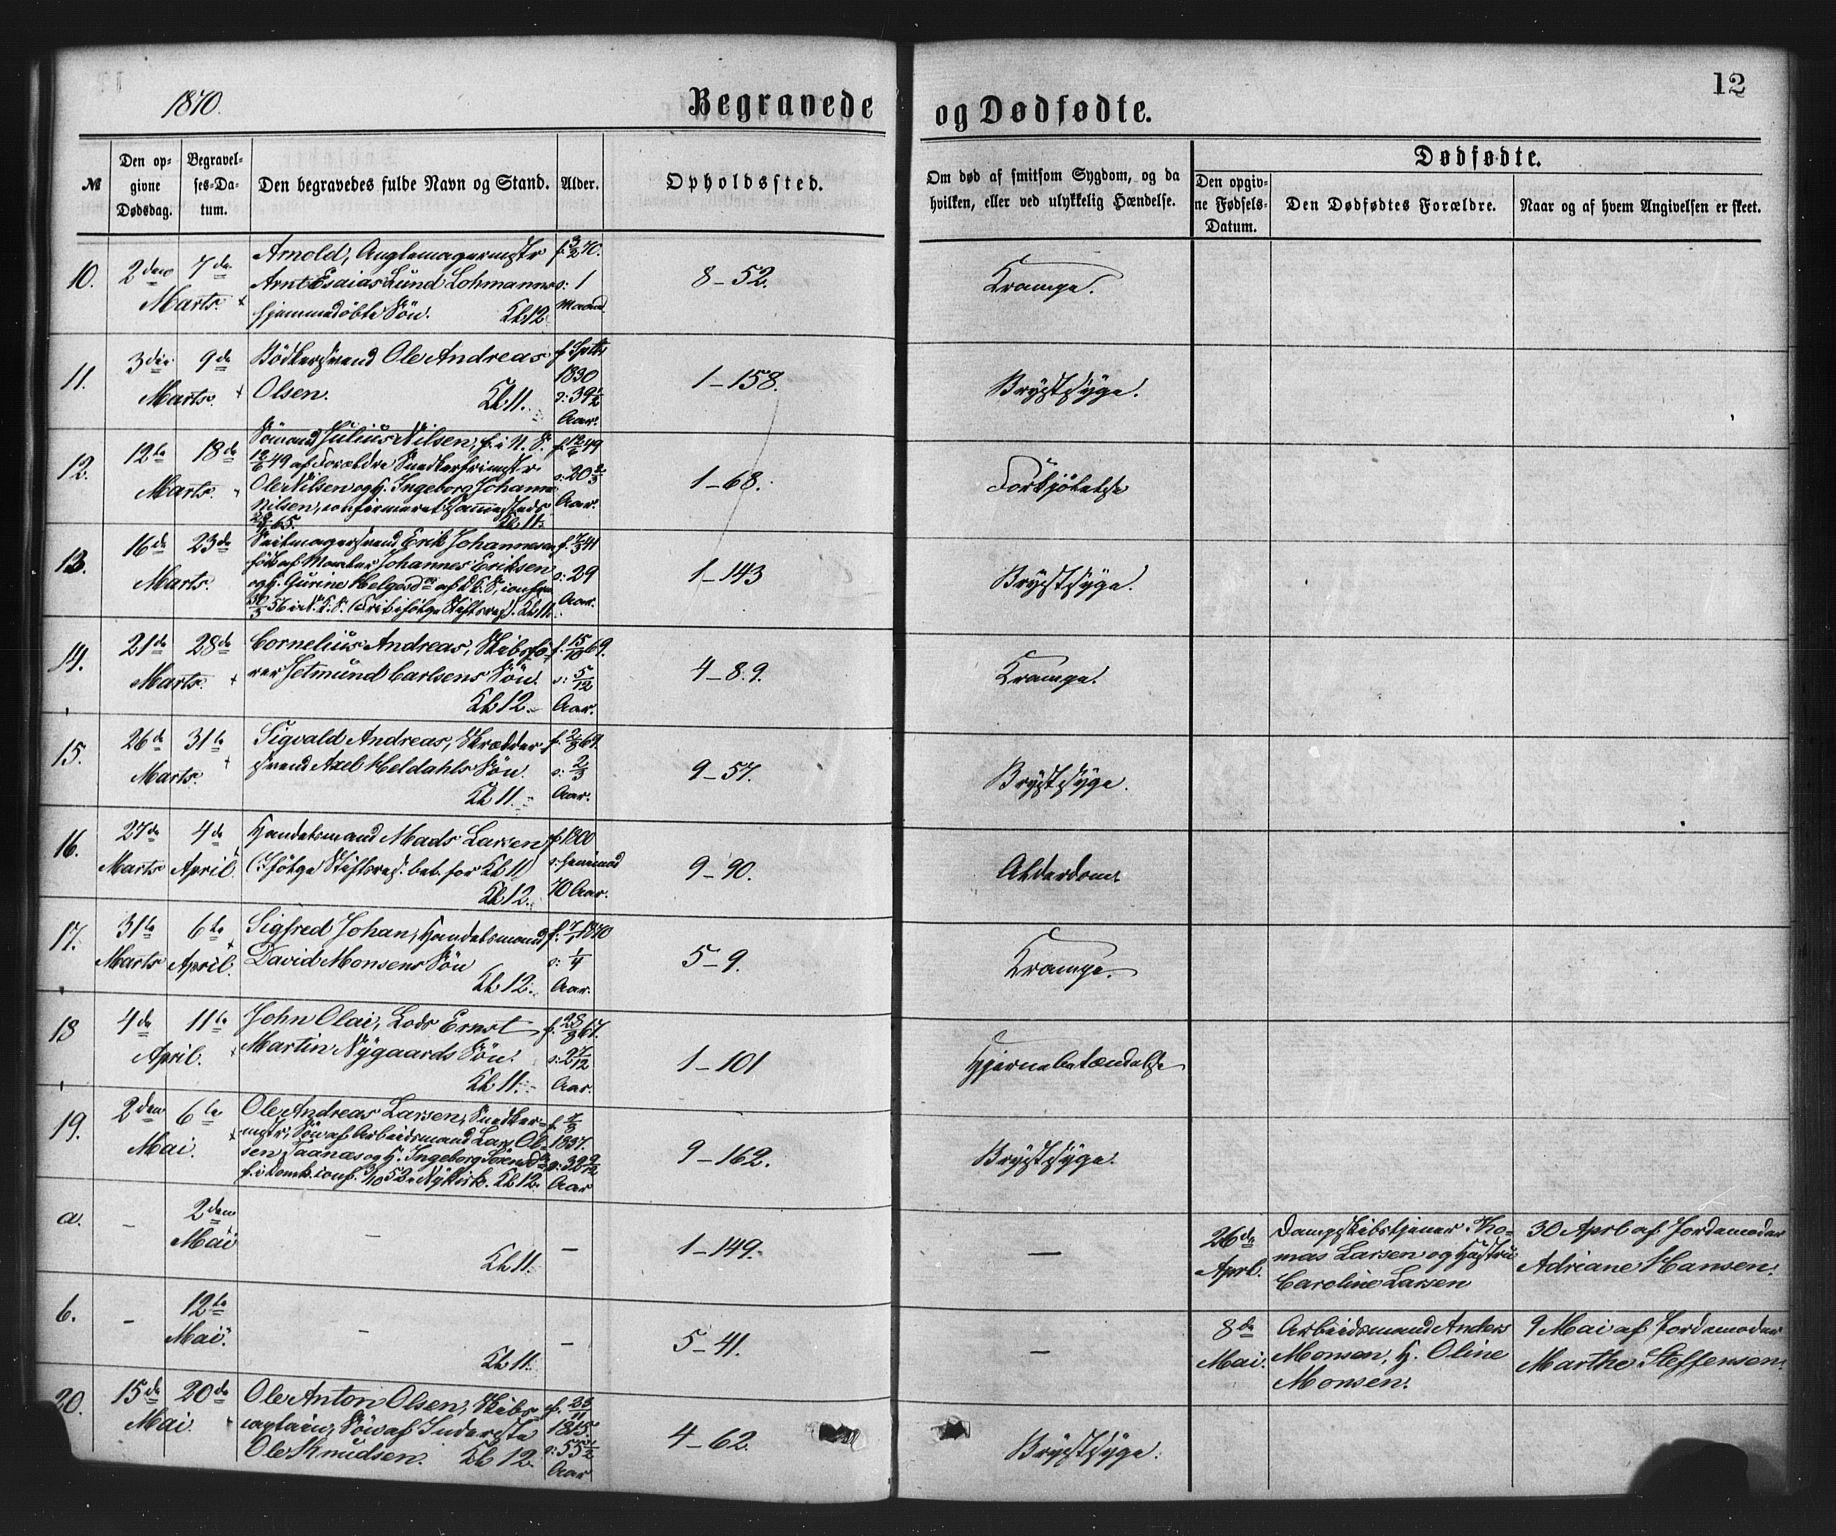 1870.
Begravede
og Dødfødte.
12
№
Den op-
givne
Dødsdag.
Begravel-
ses-Da-
tum.
Den begravedes fulde Navn og Stand.
Alder.
Opholdssted.
Om død af smitsom Sygdom, og da
hvilken, eller ved ulykkelig Hændelse.
Dødfødte.
Den opgiv-
ne Fødsels-
Datum.
Den Dødfødtes Forældre.
Naar og af hvem Angivelsen er skeet.
10.
2den
7de
Marts.
Arnold,
Arnt Esaias Lund Lohmanns
hjemmedøbte Søn. Kl. 12
f. 3/2 70.
o: 1
Maaned
8-52.
Krampe.
11.
3die
9de
Marts.
Bødkersvend Ole Andreas
Olsen. Kl. 11.
f. Septb
1830
o: 39½
Aar.
1-158.
Brystsyge.
12.
12te
18de
Marts.
Sømand Julius Nilsen, f. i N. S.
12/6 49 af Forældre Snedkermstr
Ole Nilsen og H. Ingeborg Johanne
Nilsen, confirmeret sammesteds
65. Kl. 11.
f. 12/6 49
o: 20 2/3
Aar.
1-68.
Forkjølelse
13.
16de
23de
Marts.
Seilmagersvend Erik Johannesen
født af Johannes Eriksen
og H. Gurine Helgesd
56 Kl. 11.
f. 7/3 41
o: 29
Aar.
1-143
Brystsyge.
14.
21de
28de
Marts.
Cornelius Andreas, Skibsfø-
rer Jetmund Carlsens Søn.
Kl. 12.
f. 15/10 69.
o: 5/12
Aar.
4-89.
Krampe.
15.
26de
31te
Marts.
Sigvald Andreas, Skrædder
svend Axel Heldahls Søn.
Kl. 11.
f. 2/8 69.
o: 2/3
Aar.
9-57.
Brystsyge.
16.
27de
4de
Marts
April.
Handelsmand Mads Larsen
(Ifølge Stiftsres. bet. for Kl. 11)
Kl. 12.
f. 1800
o: henimod
70 Aar.
9-90.
Alderdom.
17.
31te
6te
Marts
April.
Sigfred Johan, Handelsmand
David Monsens Søn
Kl. 12.
f. 7/1 1870
o: 1/4
Aar.
5-9.
Krampe.
18
4de
11te
April.
John Olai, Lods Ernst
Martin Nygaards Søn.
Kl. 11.
f. 28/8 67.
o: 2 7/12
Aar.
1-101
Hjernebetændelse
19.
2den
6te
Mai.
Ole Andreas Larsen, Snedker-
mstr, Søn af Arbeidsmand Lars Ol-
sen og H. Ingeborg
f. i Domk. conf. 3/10 52 i Nykirk. Kl. 12.
1837.
o: 32 9/12
Aar
9-162.
Brystsyge.
a.
-
2den
Mai
-
Kl. 11.
-
1-149.
-
26de
Aprl.
Dampskibstjener Tho-
mas Larsen og Hustru
Caroline Larsen
30 Aprl af Jordemoder
Adriane Hansen.
b.
-
12te
Mai.
-
Kl. 11.
-
5-41.
-
8de
Mai.
Arbeidsmand Anders
Monsen, H. Oline
Monsen.
9 Mai af Jordemoder
Marthe Steffensen.
20.
15de
20de
Mai
Ole Anton Olsen, Skibs
captein, Søn af Inderste
Ole Knudsen. Kl. 12.
1815.
o: 55½
Aar
4-62.
Brystsyge.